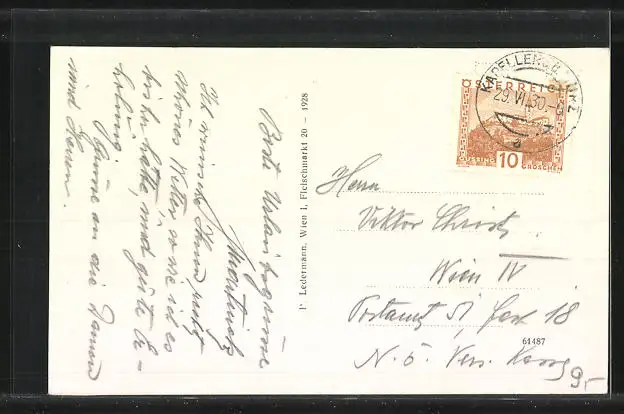 Beste Urlaubsgrüsse
Ich wünsche Ihnen, recht
schönes Wetter so wie ich es
bisher hatte, und gute Er-
holung.
Grüsse an die Damen
und Herren.
P. Ledermann, Wien I, Fleischmarkt 20 – 1928
KAPELLEN
29. VI. 30.
ÖSTERREICH
GÜSSING 10 GROSCHEN
Herrn
Viktor Christ
Wien IV
Postamt 51, Fach 18
N. ö. Vers.
61487
9,-